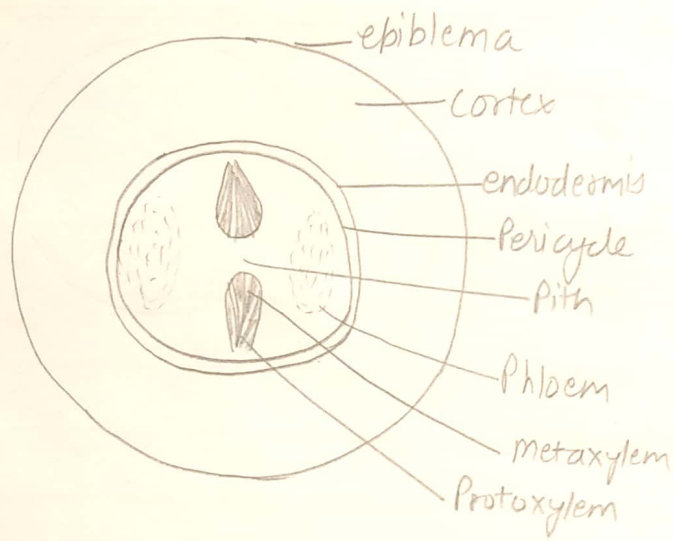 epiblema
cortex
endodermis
Pericycle
Pith
Phloem
metaxylem
Protoxylem